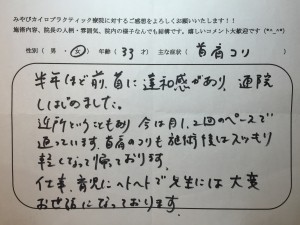 みやびカイロプラクティック療院に対するご感想をよろしくお願いいたします!!
施術内容、院長の人柄・雰囲気、院内の様子なんでも結構です。嬉しいコメント大歓迎です(*^_^*)
性別(男・女) 年齢(33)才 主な症状(首肩コリ)
半年ほど前、首に違和感があり、通院
しはじめました。
近所ということもあり 今は月1、2回のペースで
通っています。首肩のコリも施術後はスッキリ
軽くなって帰っております。
仕事、育児にヘトヘトで先生には大変
お世話になっております。